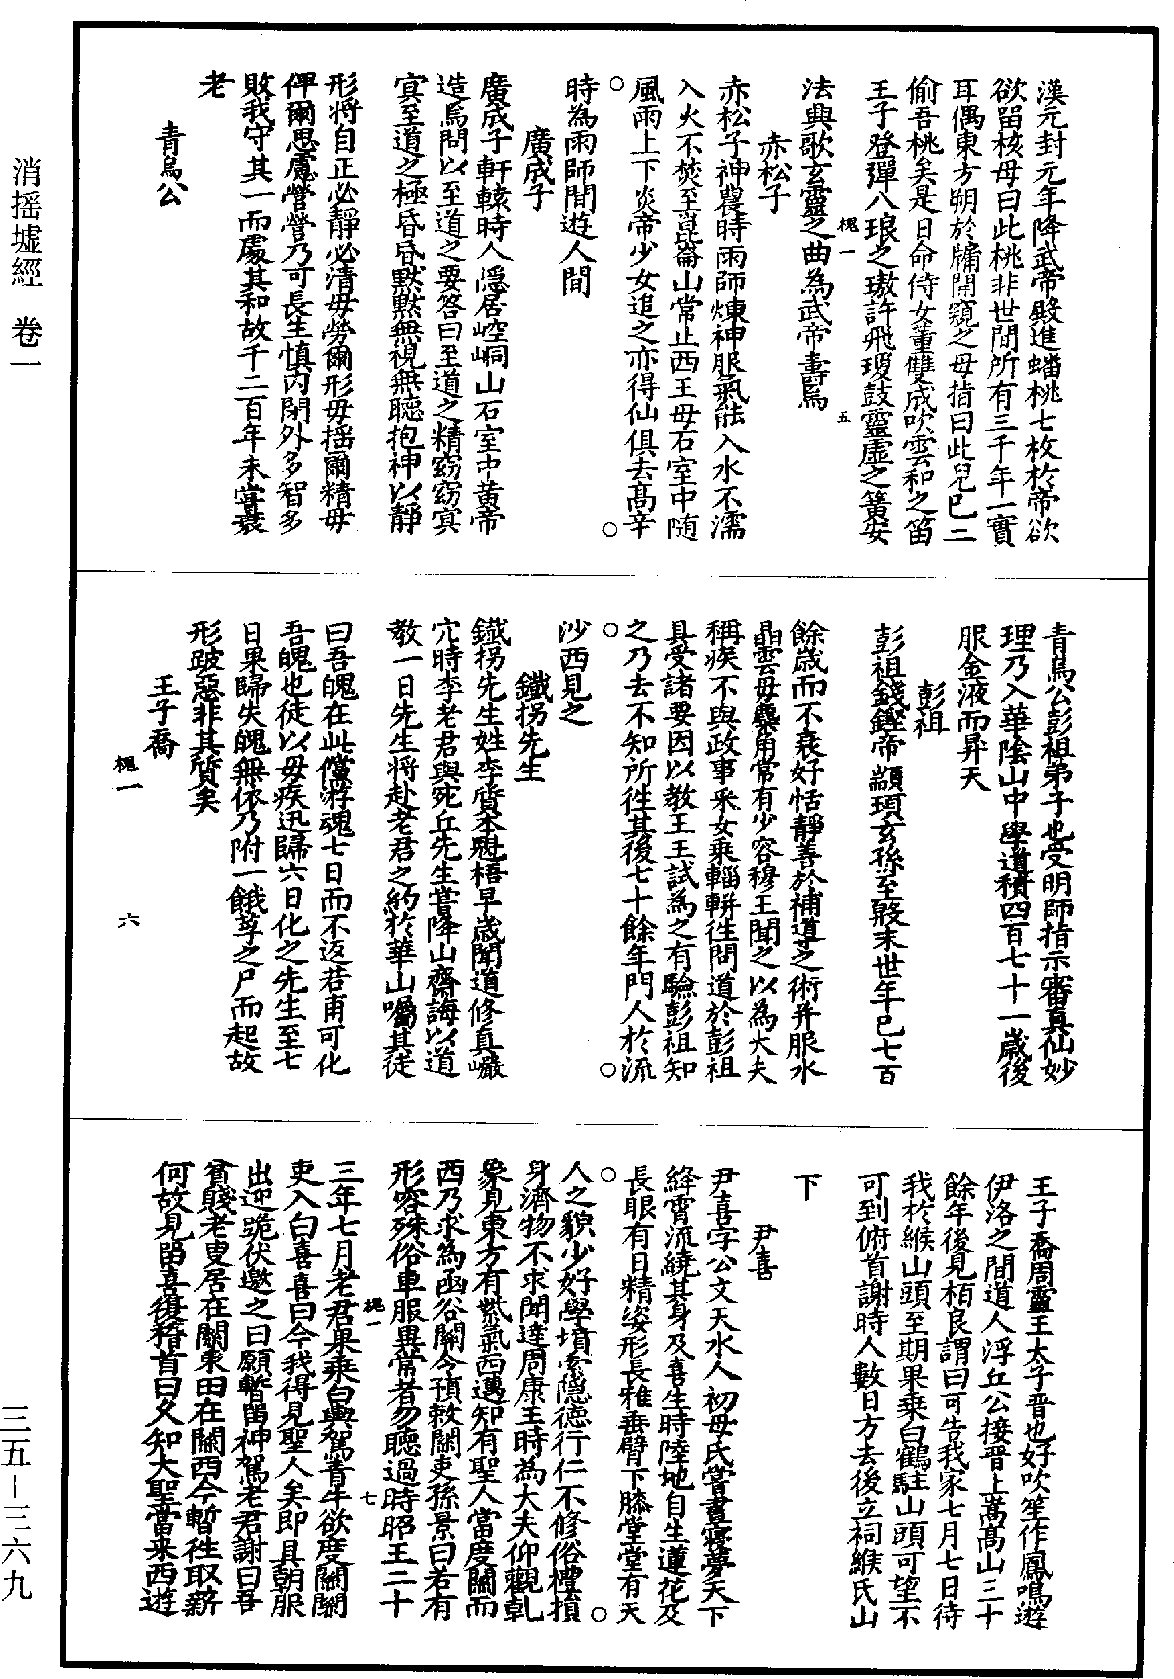 漢元封元年降武帝殿進蟠桃七枚於帝欲
欲留核母曰此桃非世間所有三千年一實
耳偶東方朔於牖間窺之母指曰此兒已三
偷吾桃矣是日命侍女董雙成吹雲和之笛
王子登彈八琅之璈許飛瓊鼓靈虛之簧安
槐一
五
法興歌玄靈之曲為武帝壽焉
赤松子
赤松子神農時雨師煉神服氣能入水不濡
入火不焚至崑崙山常止西王母石室中随
風雨上下炎帝少女追之亦得仙俱去高辛
時為雨師間遊人間
廣成子
廣成子軒轅時人隱居崆峒山石室中黃帝
造焉問以至道之要答曰至道之精窈窈冥
冥至道之極昏昏默默無視無聽抱神以靜
形將自正必靜必清毋勞爾形毋揺爾精毋
俾爾思慮營營乃可長生慎內閉外多智多
敗我守其一而處其和故千二百年未嘗衰
老
青烏公
青烏公彭祖弟子也受明師指示審真仙妙
理乃入華陰山中學道積四百七十一歲後
服金液而昇天
彭祖
彭祖錢鏗帝顓頊玄孫至殷末世年已七百
餘歲而不衰好恬靜善於補導之術并服水
晶雲母麋角常有少容穆王聞之以為大夫
稱疾不與政事采女乘輜軿徃問道於彭祖
具受諸要因以教王王試為之有驗彭祖知
之乃去不知所徃其後七十餘年門人於流
沙西見之
鐵拐先生
鐵拐先生姓李質本魁梧早歲聞道修真巖
穴時李老君與宛丘先生嘗降山齋誨以道
教一日先生將赴老君之約於華山囑其徒
曰吾魄在此儻游魂七日而不返若甫可化
吾魄也徒以母疾迅歸六日化之先生至七
日果歸失魄無依乃附一餓莩之尸而起故
形跛惡非其質矣
王子喬
槐一
六
王子喬周靈王太子晉也好吹笙作鳳鳴遊
伊洛之間道人浮丘公接晉上嵩高山三十
餘年後見栢良謂曰可告我家七月七日待
我於緱山頭至期果乘白鶴駐山頭可望不
可到俯首謝時人數日方去後立祠緱氏山
下
尹喜
尹喜字公文天水人初母氏嘗晝寢夢天下
絳霄流繞其身及喜生時陸地自生蓮花及
長眼有日精姿形長雅垂臂下膝堂堂有天
人之貌少好學墳索隱德行仁不修俗禮損
身濟物不求聞達周康王時為大夫仰觀乹
象見東方有紫氣西邁知有聖人當度關而
西乃求為函谷關令預敕關吏孫景曰若有
形容殊俗車服異常者勿聽過時昭王二十
槐一
七
三年七月老君果乘白輿駕青牛欲度關關
吏入白喜喜曰今我得見聖人矣即具朝服
出迎跪伏邀之曰願暫留神駕老君謝曰吾
貧賤老叟居在關東田在關西今暫徃取薪
何故見留喜復稽首曰久知大聖當来西遊
消揺墟經　卷一
三五－三六九